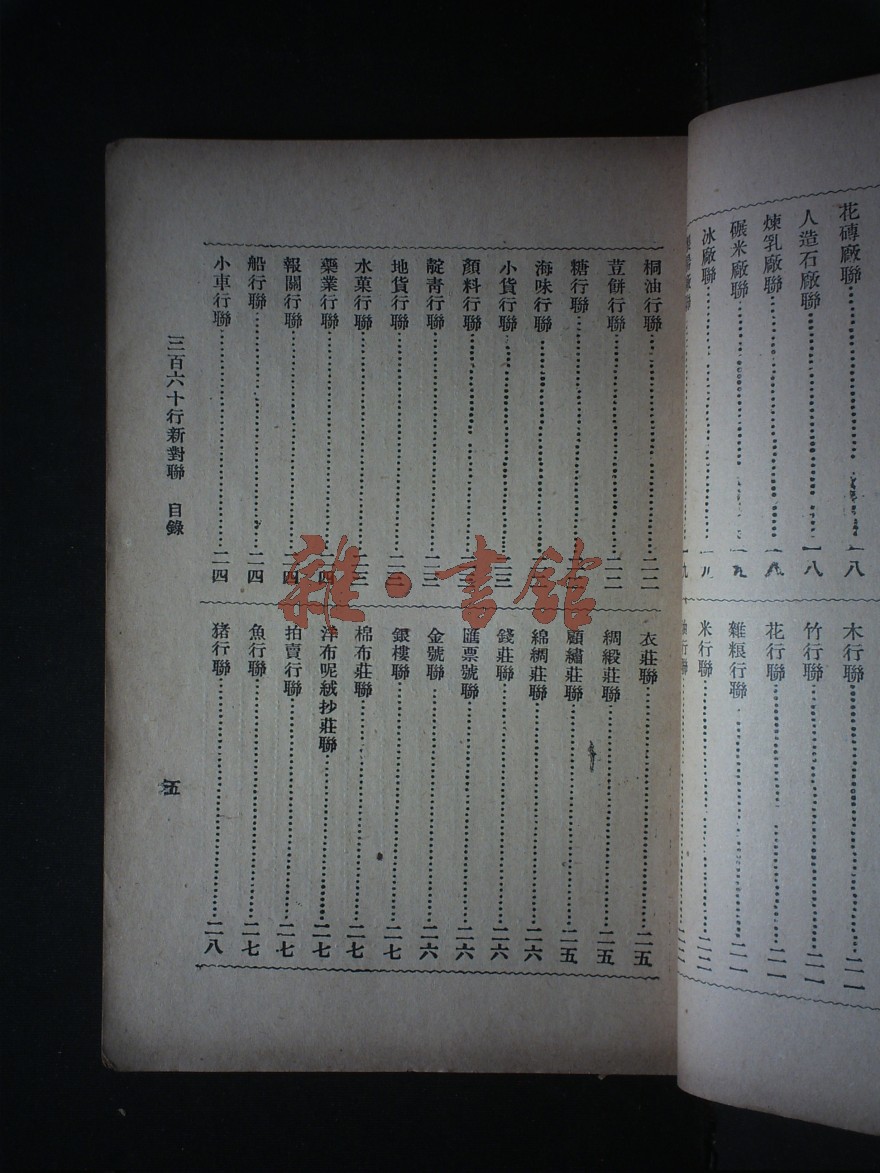 花磚廠聯 一八
人造石廠聯 一八
煉乳廠聯
碾米廠聯 一九
冰廠聯
木行聯 二一
竹行聯 二一
花行聯 二一
雜粮行聯 二一
米行聯 二二
桐油行聯 二二
荳餅行聯 二二
糖行聯
海味行聯
小貨行聯 二三
顏料行聯
靛青行聯 二三
地貨行聯 二三
水菓行聯 二三
藥業行聯 二四
報關行聯 二四
船行聯 二四
小車行聯 二四
衣莊聯 二五
綢緞莊聯 二五
顧繡莊聯 二五
綿綢莊聯 二六
錢莊聯 二六
匯票號聯 二六
金號聯 二六
銀樓聯 二七
棉布莊聯 二七
洋布呢絨抄莊聯 二七
拍賣行聯 二七
魚行聯 二七
猪行聯 二八
三百六十行新對聯 目錄
五
雜·書館